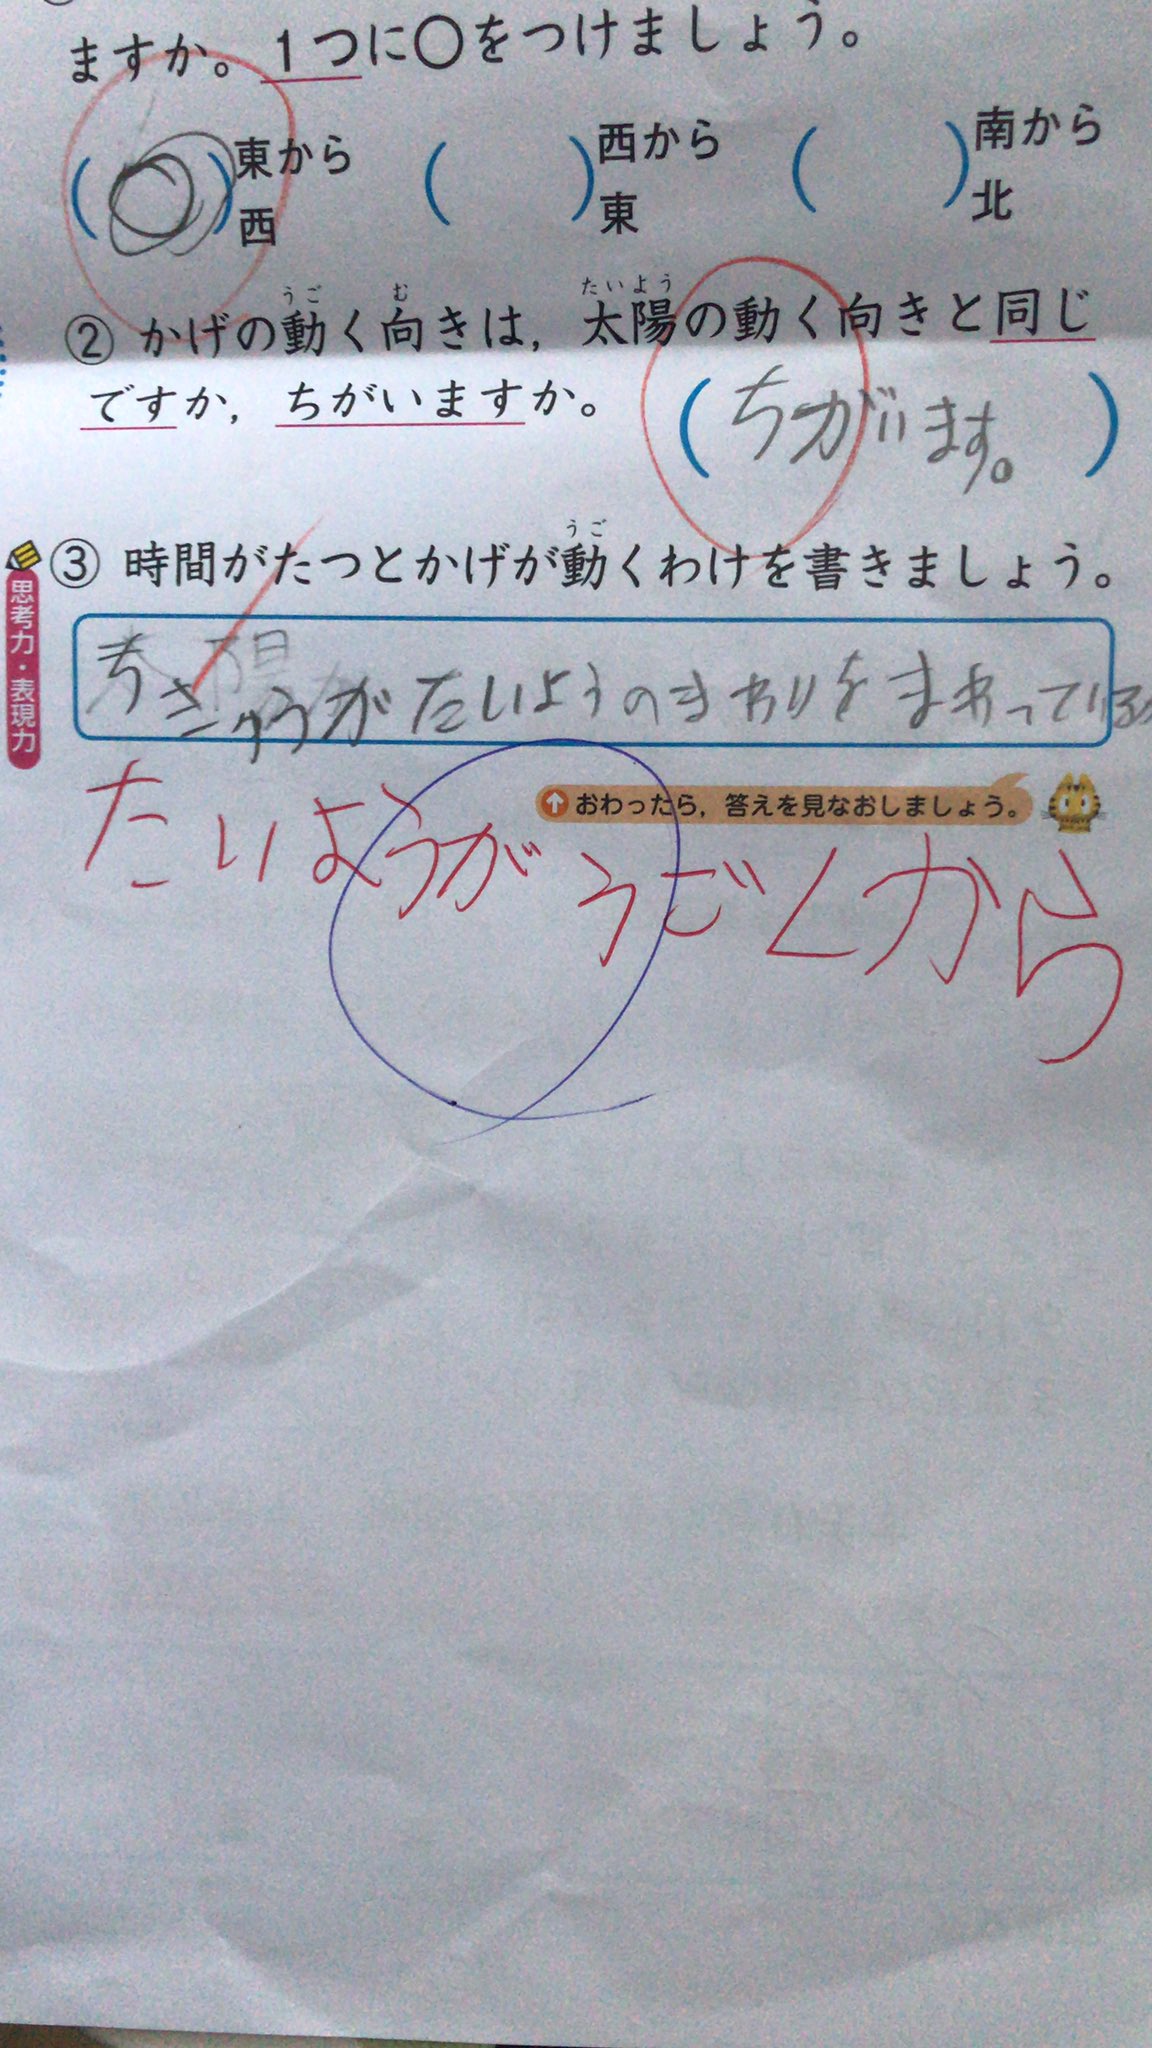 ますか。1つに○をつけましょう。
(○)東から西 ( )西から東 ( )南から北
② かげの動く向きは，太陽の動く向きと同じ
ですか，ちがいますか。(ちがいます。)
③ 時間がたつとかげが動くわけを書きましょう。
思考力・表現力
ちきゅうがたいようのまわりをまわっている
おわったら，答えを見なおしましょう。
たいようがうごくから